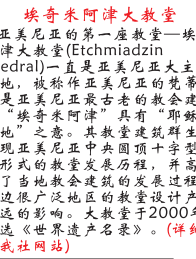 埃奇米阿津大教堂
亚美尼亚的第一座教堂—埃
津大教堂(Etchmiadzin
edral)一直是亚美尼亚大主
地，被称作亚美尼亚的梵蒂
是亚美尼亚最古老的教会建
“埃奇米阿津” 具有“耶稣
地” 之意。其教堂建筑群生
现亚美尼亚中央圆顶十字型
形式的教堂发展历程，并高
了当地教会建筑的发展过程
边很广泛地区的教堂设计产
远的影响。大教堂于2000年
选《世界遗产名录》。(详细
我社网站)